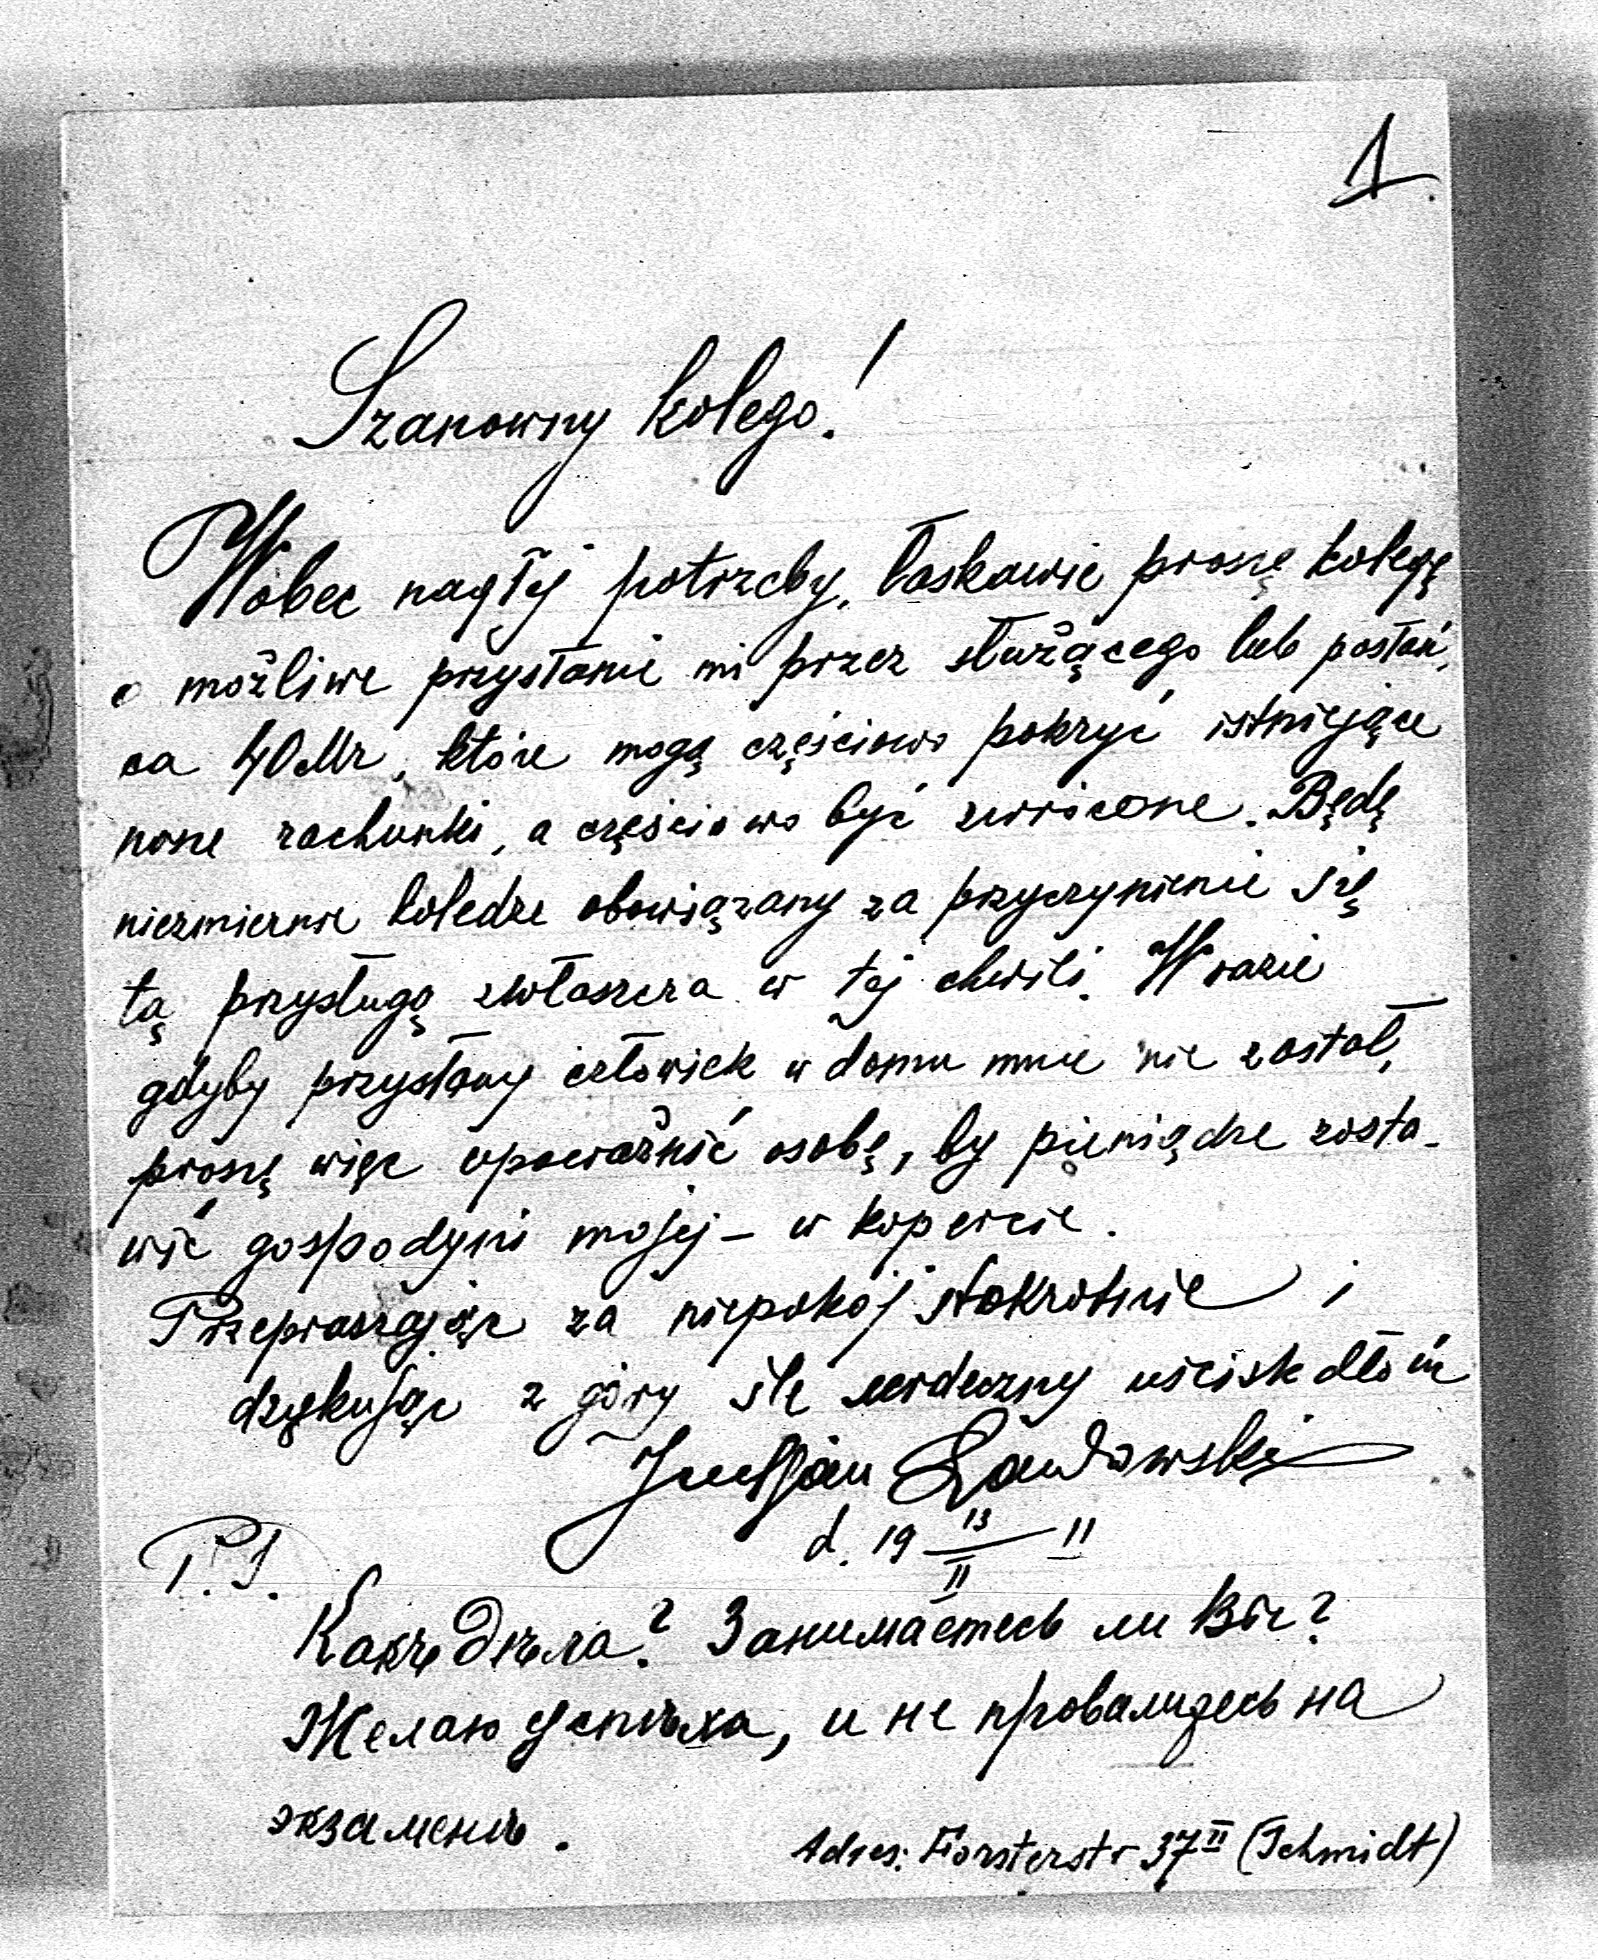 1.
Szanowny kolego!
Wobec nagłej potrzeby, łaskawie proszę kolegę
o możliwe przysłanie mi przez służącego lub posłań,
ca 40 Mr, które mogą częściowo pokryć istniejące
nasze rachunki, a częściowo być zwrócone. Będę
niezmiernie koledze obowiązany za przyczynienie się
tą przysługą zwłaszcza w tej chwili. W razie
gdyby przysłany człowiek w domu mnie nie zastał,
proszę więc upoważnić osobę, by pieniądze zosta-
wić gospodyni mojej – w kopercie.
Przepraszając za niepokój stokrotnie i
dziękując z góry ślę serdeczny uścisk dłoni
d. 19 13/II 11
P.S.
Какъ дѣла? Занимаетесь ли Вы?
Желаю успѣха, и не провалитесь на
экзаменѣ.
Adres: Forsterstr 37 II (Schmidt)